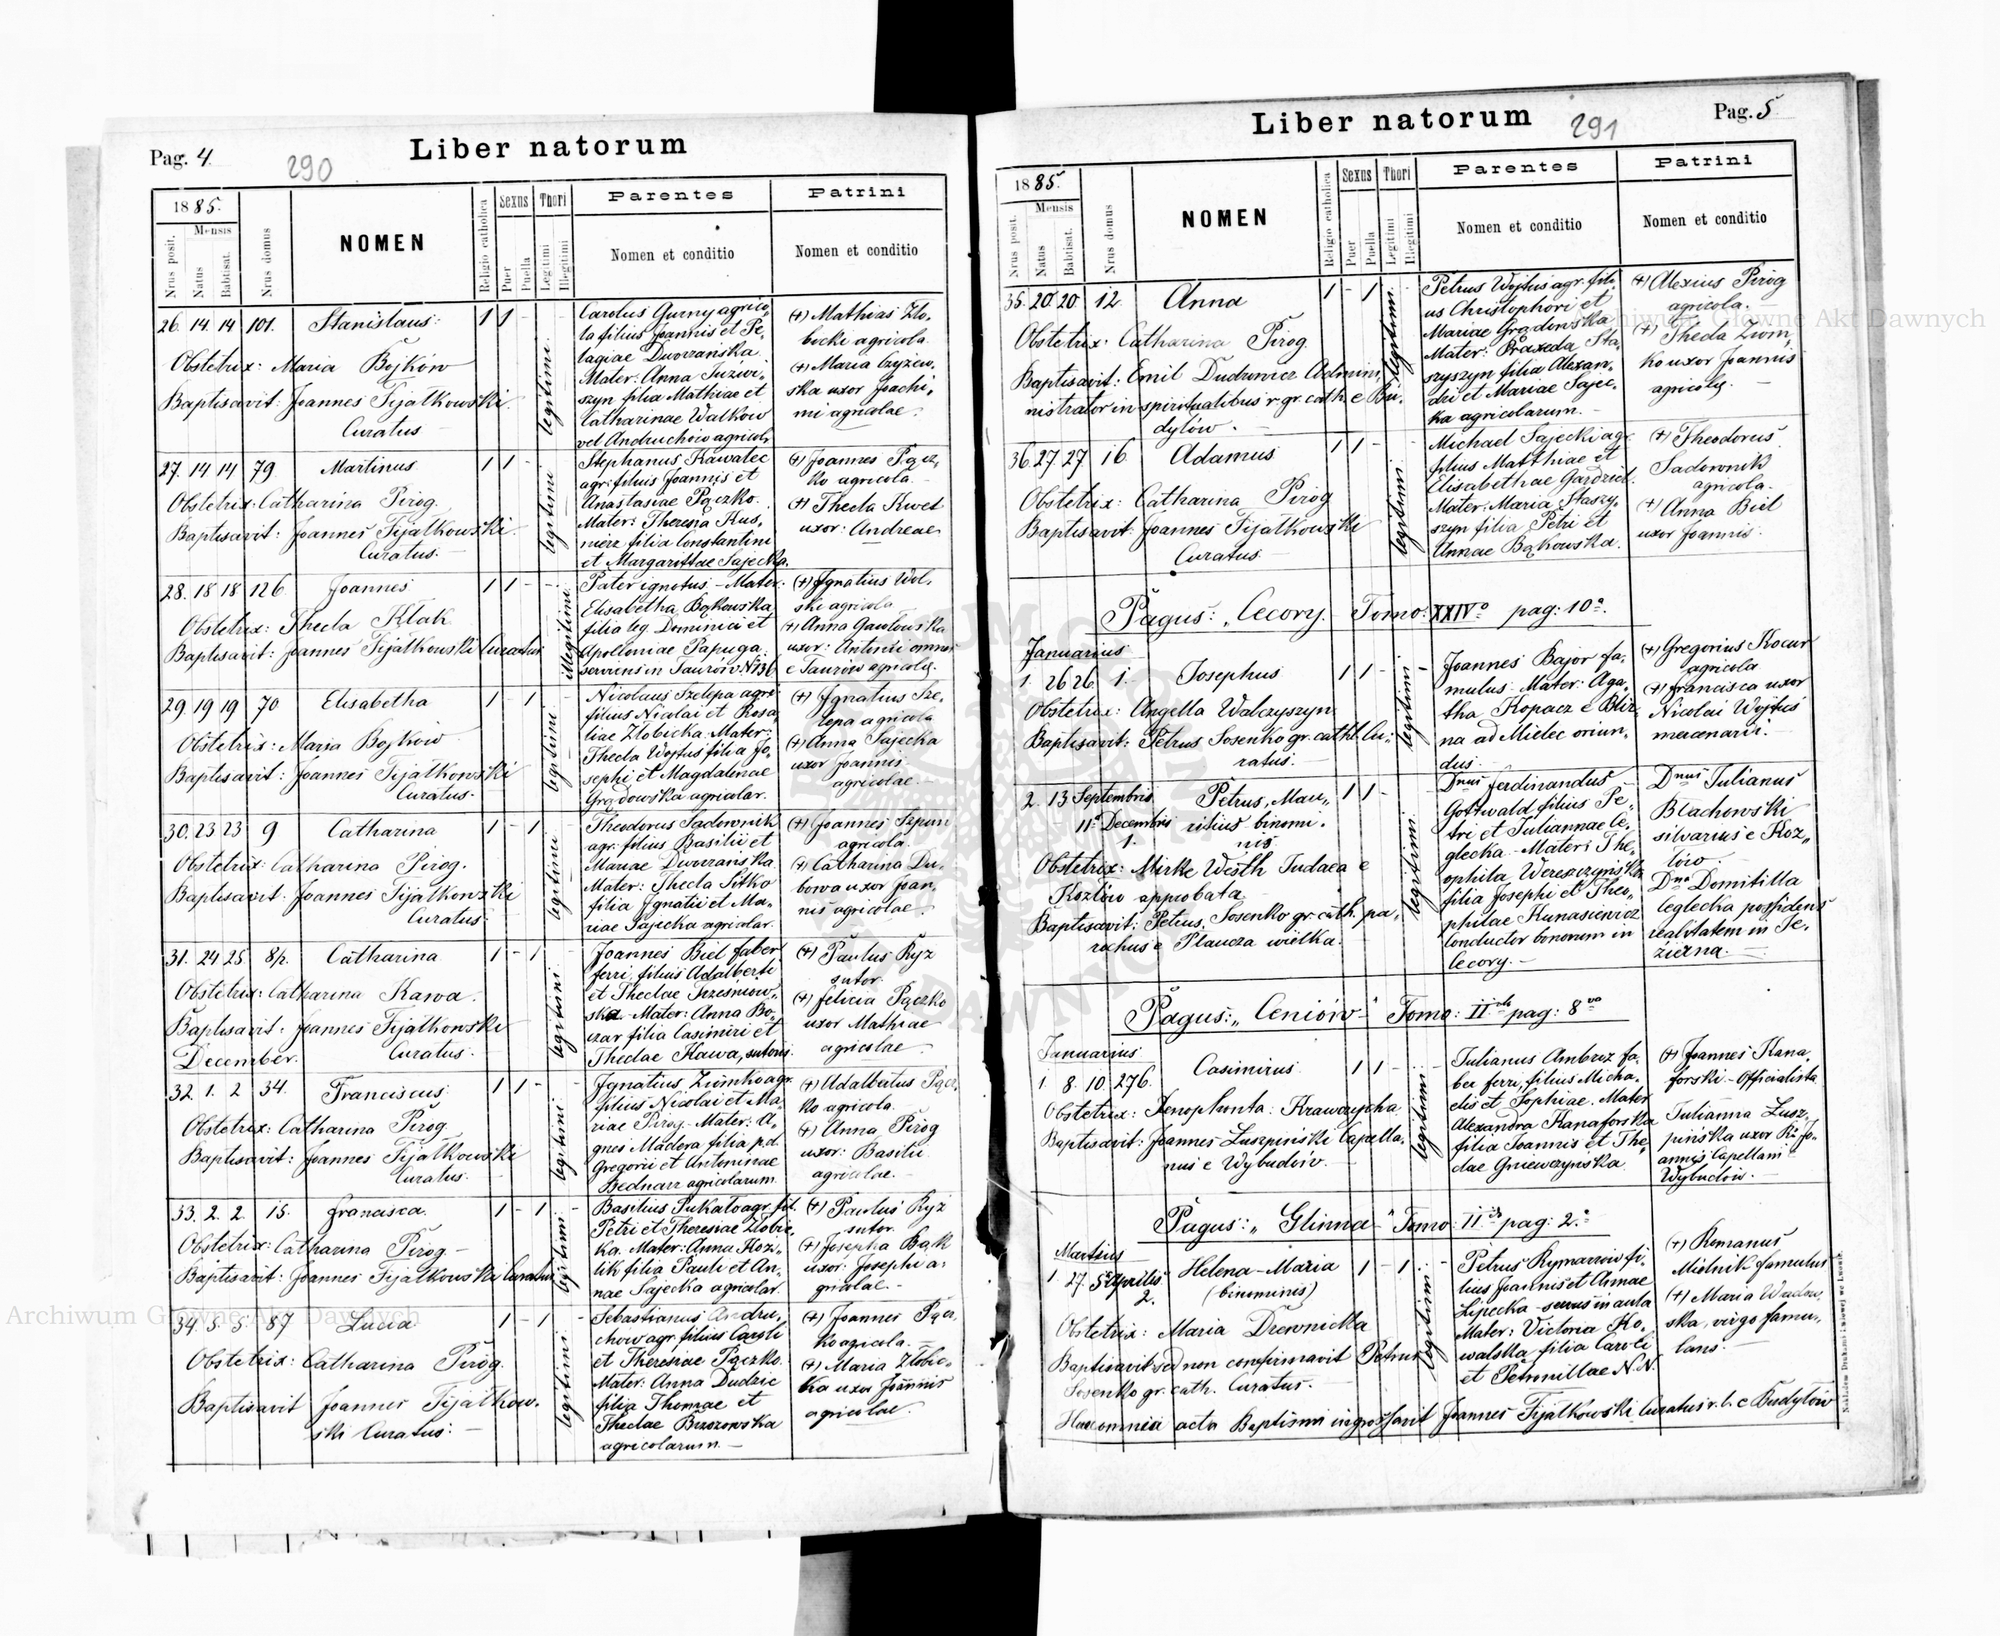 Pag. 4.
290
Liber natorum
1885.
Mensis
Nrus posit.
Natus
Babtisat.
Nrus domus
NOMEN
Religio catholica
Sexus
Puer
Puella
Thori
Legitimi
Illegitimi
Parentes
Nomen et conditio
Patrini
Nomen et conditio
26. 14. 14 101. Stanislaus: 1 1 -
Obstetrix: Maria Bojków
Baptisavit: Joannes Fijałkowski
Curatus
legitimi
Carolus Gurny agrico-
la filius Joannis et Pe-
lagiae Dworzańska
Mater: Anna Juzwi-
szyn filia Mathiae et
Catharinae Walkow
vel Andruchow agricol.
(+) Mathias Zło-
bocki agricola
(+) Maria Czyżew-
ska uxor Joachi-
mi agricolae.
27. 14 14 79 Martinus 1 1 -
Obstetrix: Catharina Pirog.
Baptisavit: Joannes Fijałkowski
Curatus.
legitimi
Stephanus Kawalec
agr: filius Joannis et
Anastasiae Pączko.
Mater: Theresia Kus-
nierz filia Constantini
et Margarittae Sajecka.
(+) Joannes Pącz,
ko agricola.
(+) Thecla Kwet
uxor: Andreae
28. 18 18 126 Joannes 1 1 -
Obstetrix: Thecla Klak
Baptisavit: Joannes Fijałkowski Curatus
illegitimi
Pater ignotus - Mater:
Elisabetha Bąkowska
filia leg. Dominici et
Apolloniae Papuga.
serviens in Taurów N136
(+) Ignatius Wol-
ski agricola
(+) Anna Gawłowska
uxor: Antonii omnes
e Taurów agricolae.
29. 19 19 70 Elisabetha 1 - 1
Obstetrix: Maria Bojków
Baptisavit: Joannes Fijałkowski
Curatus.
legitimi
Nicolaus Szelepa agr.
filius Nicolai et Rosa-
liae Złobicka. Mater:
Thecla Wojtus filia Jo-
sephi et Magdalenae
Grądowska agricolar.
(+) Ignatius Sze-
lepa agricola
(+) Anna Sajecka
uxor Joannis
agricolae.
30. 23 23 9 Catharina 1 - 1
Obstetrix: Catharina Pirog.
Baptisavit: Joannes Fijałkowski
Curatus:
legitimi
Theodorus Sadownik
agr. filius Basilii et
Mariae Dworzańska
Mater: Thecla Sitko
filia Ignatii et Ma-
riae Sajecka agricolar.
(+) Joannes Szpun
agricola.
(+) Catharina Du-
bowa uxor Joan-
nis agricolae.
31. 24 25 8/2. Catharina 1 - 1
Obstetrix: Catharina Kawa.
Baptisavit: Joannes Fijałkowski
Curatus.
legitimi
Joannes Biel faber
ferri, filius Adalberti
et Theclae Trześniow-
ska - Mater: Anna Bo-
czar filia Casimiri et
Theclae Kawa, sutoris.
(+) Paulus Ryz
sutor.
(+) Felicia Pączko
uxor Mathiae
agricolae
December.
32. 1. 2 34. Franciscus 1 1 -
Obstetrix: Catharina Pirog
Baptisavit: Joannes Fijałkowski
Curatus.
legitimi
Ignatius Ziomko agr.
filius Nicolai et Ma-
riae Pirog - Mater: A-
gnes Madera filia pd.
Gregorii et Antoninae
Bednarz agricolarum.
(+) Adalbertus Pącz-
ko agricola.
(+) Anna Pirog
uxor: Basilii
agricolae.
33. 2. 2. 15. Francisca. 1 - 1
Obstetrix: Catharina Pirog -
Baptisavit: Joannes Fijałkowski Curatus
legitimi
Basilius Pukało agr. fil.
Petri et Theresiae Złobic-
ka. Mater: Anna Kozi-
lik filia Pauli et An-
nae Sajecka agricolar.
(+) Paulus Ryz
sutor.
(+) Josepha Bąk
uxor: Josephi a-
gricolae.
34. 5. 5. 87 Lucia 1 - 1
Obstetrix: Catharina Pirog
Baptisavit Joannes Fijałkow-
ski Curatus:
legitimi
Sebastianus Andru-
chow agr. filius Caroli
et Theresiae Pączko.
Mater: Anna Dudzic
filia Thomae et
Theclae Brzozowska
agricolarum.
(+) Joannes Pącz-
ko agricola.
(+) Maria Złobic-
ka uxor Joannis
agricolae
Liber natorum
291
Pag. 5
1885.
Mensis
Nrus posit.
Natus
Babtisat.
Nrus domus
NOMEN
Religio catholica
Sexus
Puer
Puella
Thori
Legitimi
Illegitimi
Parentes
Nomen et conditio
Patrini
Nomen et conditio
35. 20 20 12 Anna 1 - 1
Obstetrix: Catharina Pirog
Baptisavit: Emil Dudrowicz Admini-
nistrator in spiritualibus r. gr. cath. e Bu-
dyłów.
legitimi
Petrus Wojtus agr. fili-
us Christophori et
Mariae Grądowska
Mater: Praxeda Sta-
szyszyn filia Alexan-
dri et Mariae Sajec-
ka agricolarum.
(+) Alexius Pirog
agricola.
(+) Thecla Ziom-
ko uxor Joannis
agricolae.
36. 27 27 16 Adamus 1 1 -
Obstetrix: Catharina Pirog
Baptisavit Joannes Fijałkowski
Curatus
legitimi
Michael Sajecki agr.
filius Matthiae et
Elisabethae Gaździcl.
Mater: Maria Staszy-
szyn filia Petri et
Annae Bąkowska.
(+) Theodorus
Sadownik
agricola.
(+) Anna Biel
uxor Joannis.
Pagus: "Cecory. Tomo: XXIVo pag: 10a.
Januarius
1. 26 26 1. Josephus 1 1 -
Obstetrix: Angella Walczyszyn
Baptisavit: Petrus Sosenko gr. cath. Cu-
ratus.
legitimi
Joannes Bajor fa-
mulus. Mater: Aga-
tha Kopacz e Bliz-
na ad Mielec oriun-
dus.
(+) Gregorius Kocur
agricola
(+) Francisca uxor
Nicolai Wojtus
mercenarii.
2. 13 Septembris Petrus, Mau- 1 1 -
11a Decembris ritius binomi-
1. nis
Obstetrix: Mirke Westh Judaea e
Kozłów approbata
Baptisavit: Petrus Sosenko gr. cath. pa-
rochus e Płaucza wielka.
legitimi
Dnus Ferdinandus
Gottwald filius Pe-
tri et Juliannae Ce-
glecka - Mater: The-
ophila Wereszczyńska
filia Josephi et Theo-
philae Kunasiewicz
Conductor bonorum in
Cecory.
Dnus Julianus
Blachowski
silvarius e Koz-
łow.
Dna Domitilla
Ceglecka possidens
realitatem in Je-
zierna.
Pagus: "Ceniów" Tomo: IIdo pag: 8va
Januarius
1. 8. 10. 276. Casimirus 1 1 -
Obstetrix: Xenophonta: Krawczycha
Baptisavit: Joannes Luszpiński Capella-
nus e Wybudów.
legitimi
Julianus Ambroz fa-
ber ferri, filius Micha-
elis et Sophiae. Mater
Alexandra Kanaforska
filia Joannis et The-
clae Gniewczynska
(+) Joannes Kana-
forski - Officialista
Julianna Lusz-
pińska uxor Rdi Jo-
annis Capellani
Wybudów.
Pagus: "Glinna" Tomo: IIdo pag: 2a
Martius
1. 27. 5 Aprilis Helena - Maria 1 - 1
2. (binominis)
Obstetrix: Maria Drewnicka
Baptisavit sed non confirmavit Petrus
Sosenko gr. cath. Curatus.
legitimi
Petrus Rymarzow fi-
lius Joannis et Annae
Lipecka - servus in aula
Mater: Victoria Ko-
walska filia Caroli
et Petronillae N.N.
(+) Romanus
Mielnik famulus
(+) Maria Wadow-
ska, virgo famu-
lans.
Haec omnia acta Baptismi ingrossavit Joannes Fijałkowski Curatus r. l. e Budyłów
Archiwum Główne Akt Dawnych
Archiwum Główne Akt Dawnych